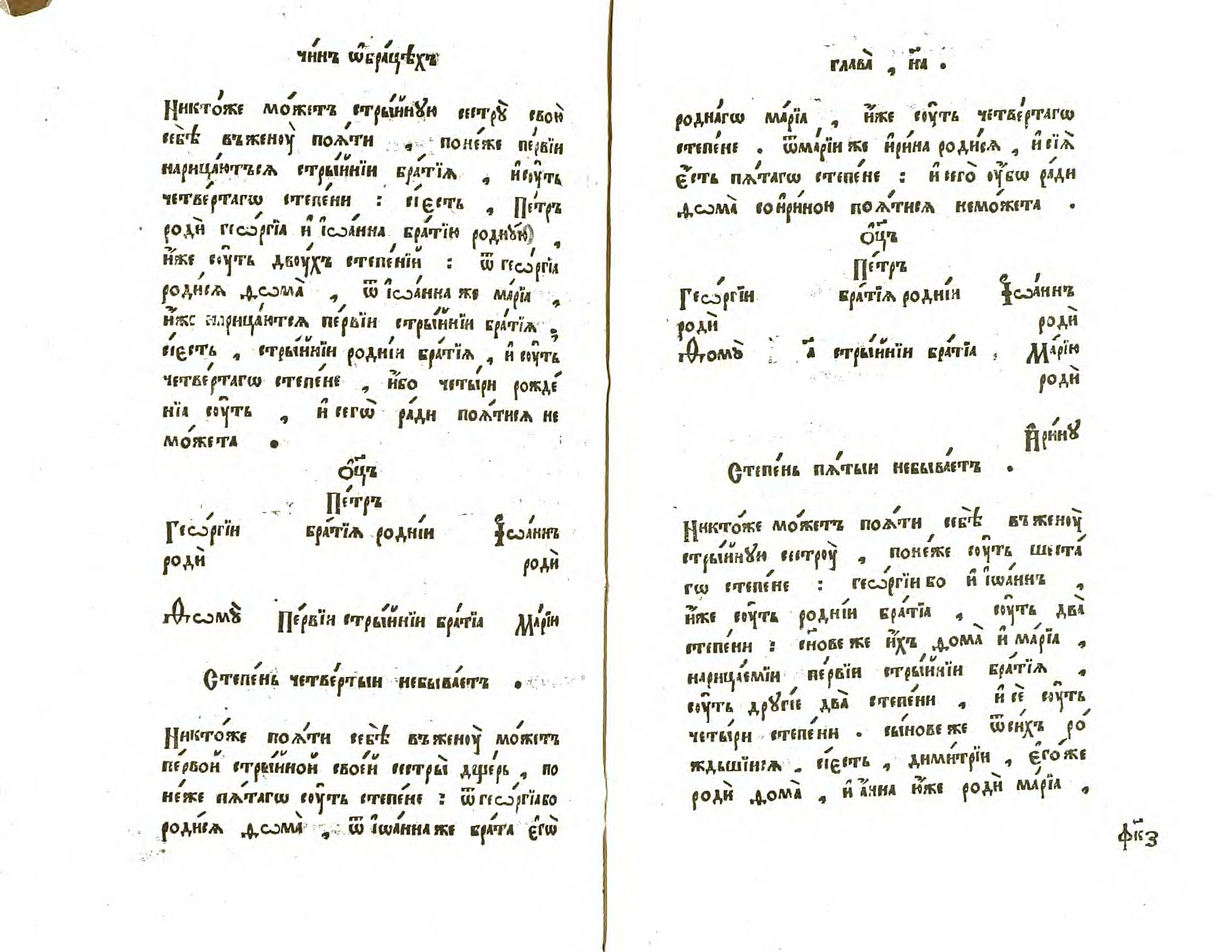 чи́нъ ѡ҆бра́цѣхъ
Никто́же мо́жетъ стры́йнꙋю сестрꙋ̀ свою̀
себѣ̀ въженоу̀ поѧ́ти , поне́же пе́рвїи
нарица́ютъсѧ стры́йнїи бра́тїѧ , и҆соу́ть
четве́ртагѡ степе́ни : сїе́сть , Пе́тръ
родѝ геѡ́ргїа и҆ і҆ѡа́нна бра́тїю роднꙋ́ю ,
и҆́же соу́ть двоу́хъ степе́нїй : ѿ геѡ́ргїа
роди́сѧ ѳѡма̀ , ѿ і҆ѡа́нна же марі́а ,
и҆́же нарица́ютсѧ пе́рвїи стры́йнїи бра́тїѧ ,
сїе́сть , стры́йнїи родні́и бра́тїѧ , и҆ соу́ть
четве́ртагѡ степе́не , и҆́бо четы́ри рожде́
нїа соу́ть , и҆ сегѡ̀ ра́ди поѧ́тисѧ не
мо́жета .
ѻ҆ц҃ъ
Пе́тръ
Геѡ́ргїи бра́тїѧ родні́и І҆ѡа́ннъ
родѝ родѝ
Ѳѡмꙋ̀ Пе́рвїи стры́йнїи бра́тїа Марі́ю
Степе́нь четве́ртыи небыва́етъ .
Никто́же поѧ́ти себѣ̀ въженоу̀ мо́жетъ
пе́рвой стры́йной свое́й сестры̀ дще́рь , по
не́же пѧ́тагѡ соу́ть степе́не : ѿ геѡ́ргїабо
роди́сѧ ѳѡма̀ , ѿ і҆ѡа́нна же бра́та є҆гѡ̀
глава̀ , н҃а .
родна́гѡ марі́а , и҆́же соу́ть четве́ртагѡ
степе́не . ѿмарі́и же и҆ри́на роди́сѧ , и҆ сїѧ̀
є҆́сть пѧ́тагѡ степе́не : и҆ сего̀ оу҆́бѡ ра́ди
ѳѡма̀ сои҆ри́ною поѧ́тисѧ неможета .
ѻ҆ц҃ъ
Пе́тръ
Геѡ́ргїи бра́тїѧ родні́и І҆ѡа́ннъ
родѝ родѝ
Ѳомꙋ̀ а҃ стры́йнїи бра́тїа , Марі́ю
родѝ
И҆ри́нꙋ
Степе́нь пѧ́тыи небыва́етъ .
Никто́же мо́жетъ поѧ́ти себѣ̀ въженоу̀
стры́йнꙋю сестроу̀ , поне́же соу́ть шеста́
гѡ степе́не : геѡ́ргїи бо и҆ і҆ѡа́ннъ ,
и҆́же соу́ть родні́и бра́тїа , соу́ть два̀
степе́ни : сн҃ове же и҆́хъ ѳома̀ и҆ марі́а ,
нарица́емїи пе́рвїи стры́йнїи бра́тїѧ ,
соу́ть дрꙋгі́е два̀ степе́ни , и҆ сѐ соу́ть
четы́ри степе́ни . сы́нове же ѿси́хъ ро́
ждьшїисѧ , сїе́сть , дими́трїи , є҆го́же
родѝ ѳома̀ , и҆ а҆́нна ю҆́же родѝ марі́а ,
фк҃з